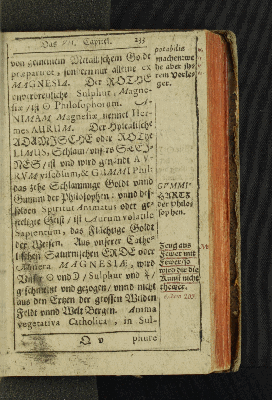 Das VII. Capitel. 233
von gemeinem Metallischem Golde
præpariret; sondern nur alleine ex
MAGNESIA. Der ROTHE
Sulphur, Magne-
siæ ist ☉ Philosophorum.
NIMAM Magnesiæ, nennet Her-
mes AURUM. Der
ADAMISCHE oder ROTHE
LIMUS, Schlam
ist und wird genandt AU-
RUM volatile, & GUMMI Phil:
das ist Schlammige Goldt unnd
Gummi der Philosophen: unnd des-
selben Spiritus Animatus oder ge-
seeligter Geist / ist Aurum volatile
Sapientum, das Flüchtige Goldt
der Weisen. Aus unserer Catho-
lischen Saturnischen ERDE oder
Minera MAGNESIÆ, wird
Unser ☉ und ☽ / Sulphur und ☿ /
geschmeltzt und gezogen / unnd nicht
aus den Ertzen der grossen Wilden
Feldt unnd Welt Bergen. Anima
vegetativa Catholica, in Sul-
Q v
phure
potabilis
machen: we-
he aber ihr
dem Vorles-
ger.
GUMMI-
HARTZ
der Philos
sophen.
Zeug aus
Fewer mit
Fewer: so
wird dir die
Kunst nicht
thewer.